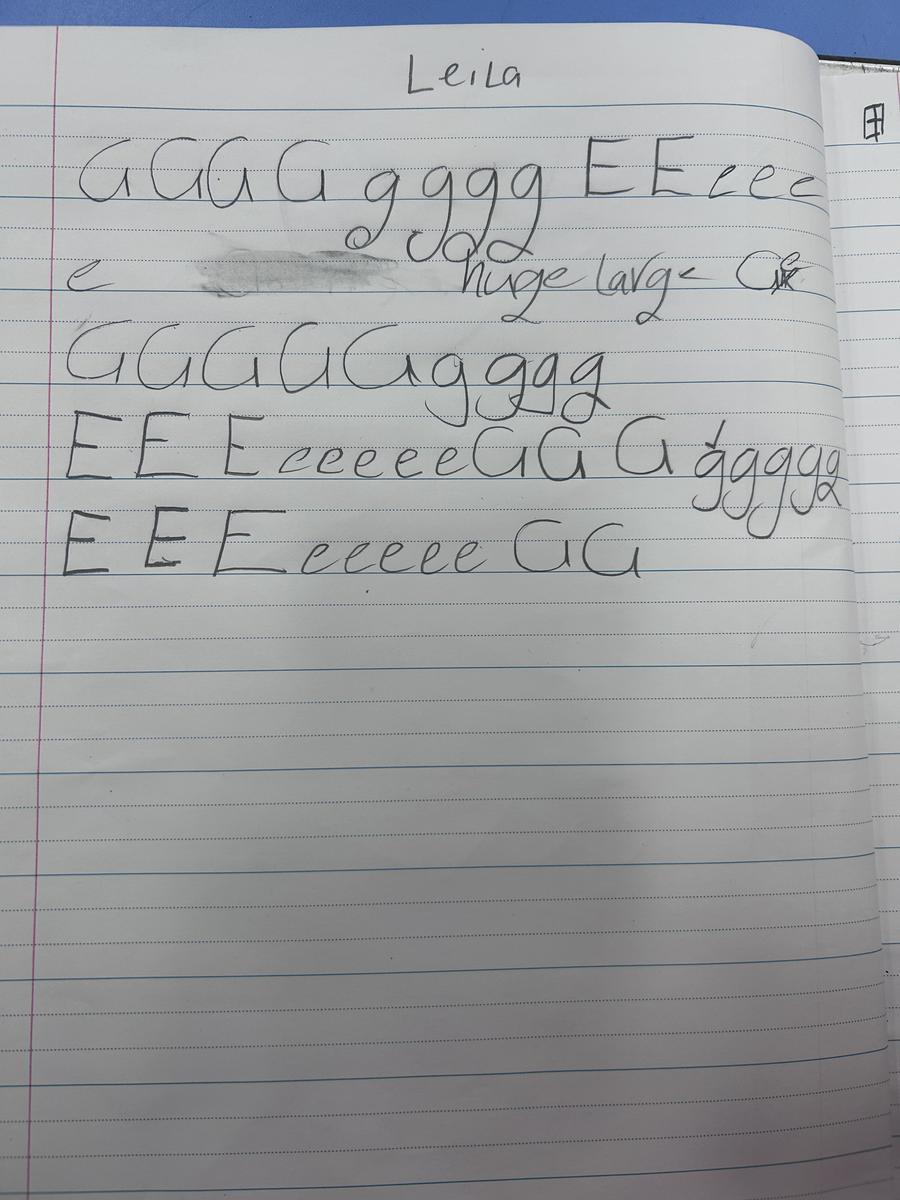 Leila
G G G G g g g g E E e e e
e huge large Ge
G G G G G g g g g
E E E e e e e e G G G g g g g g
E E E e e e e e G G